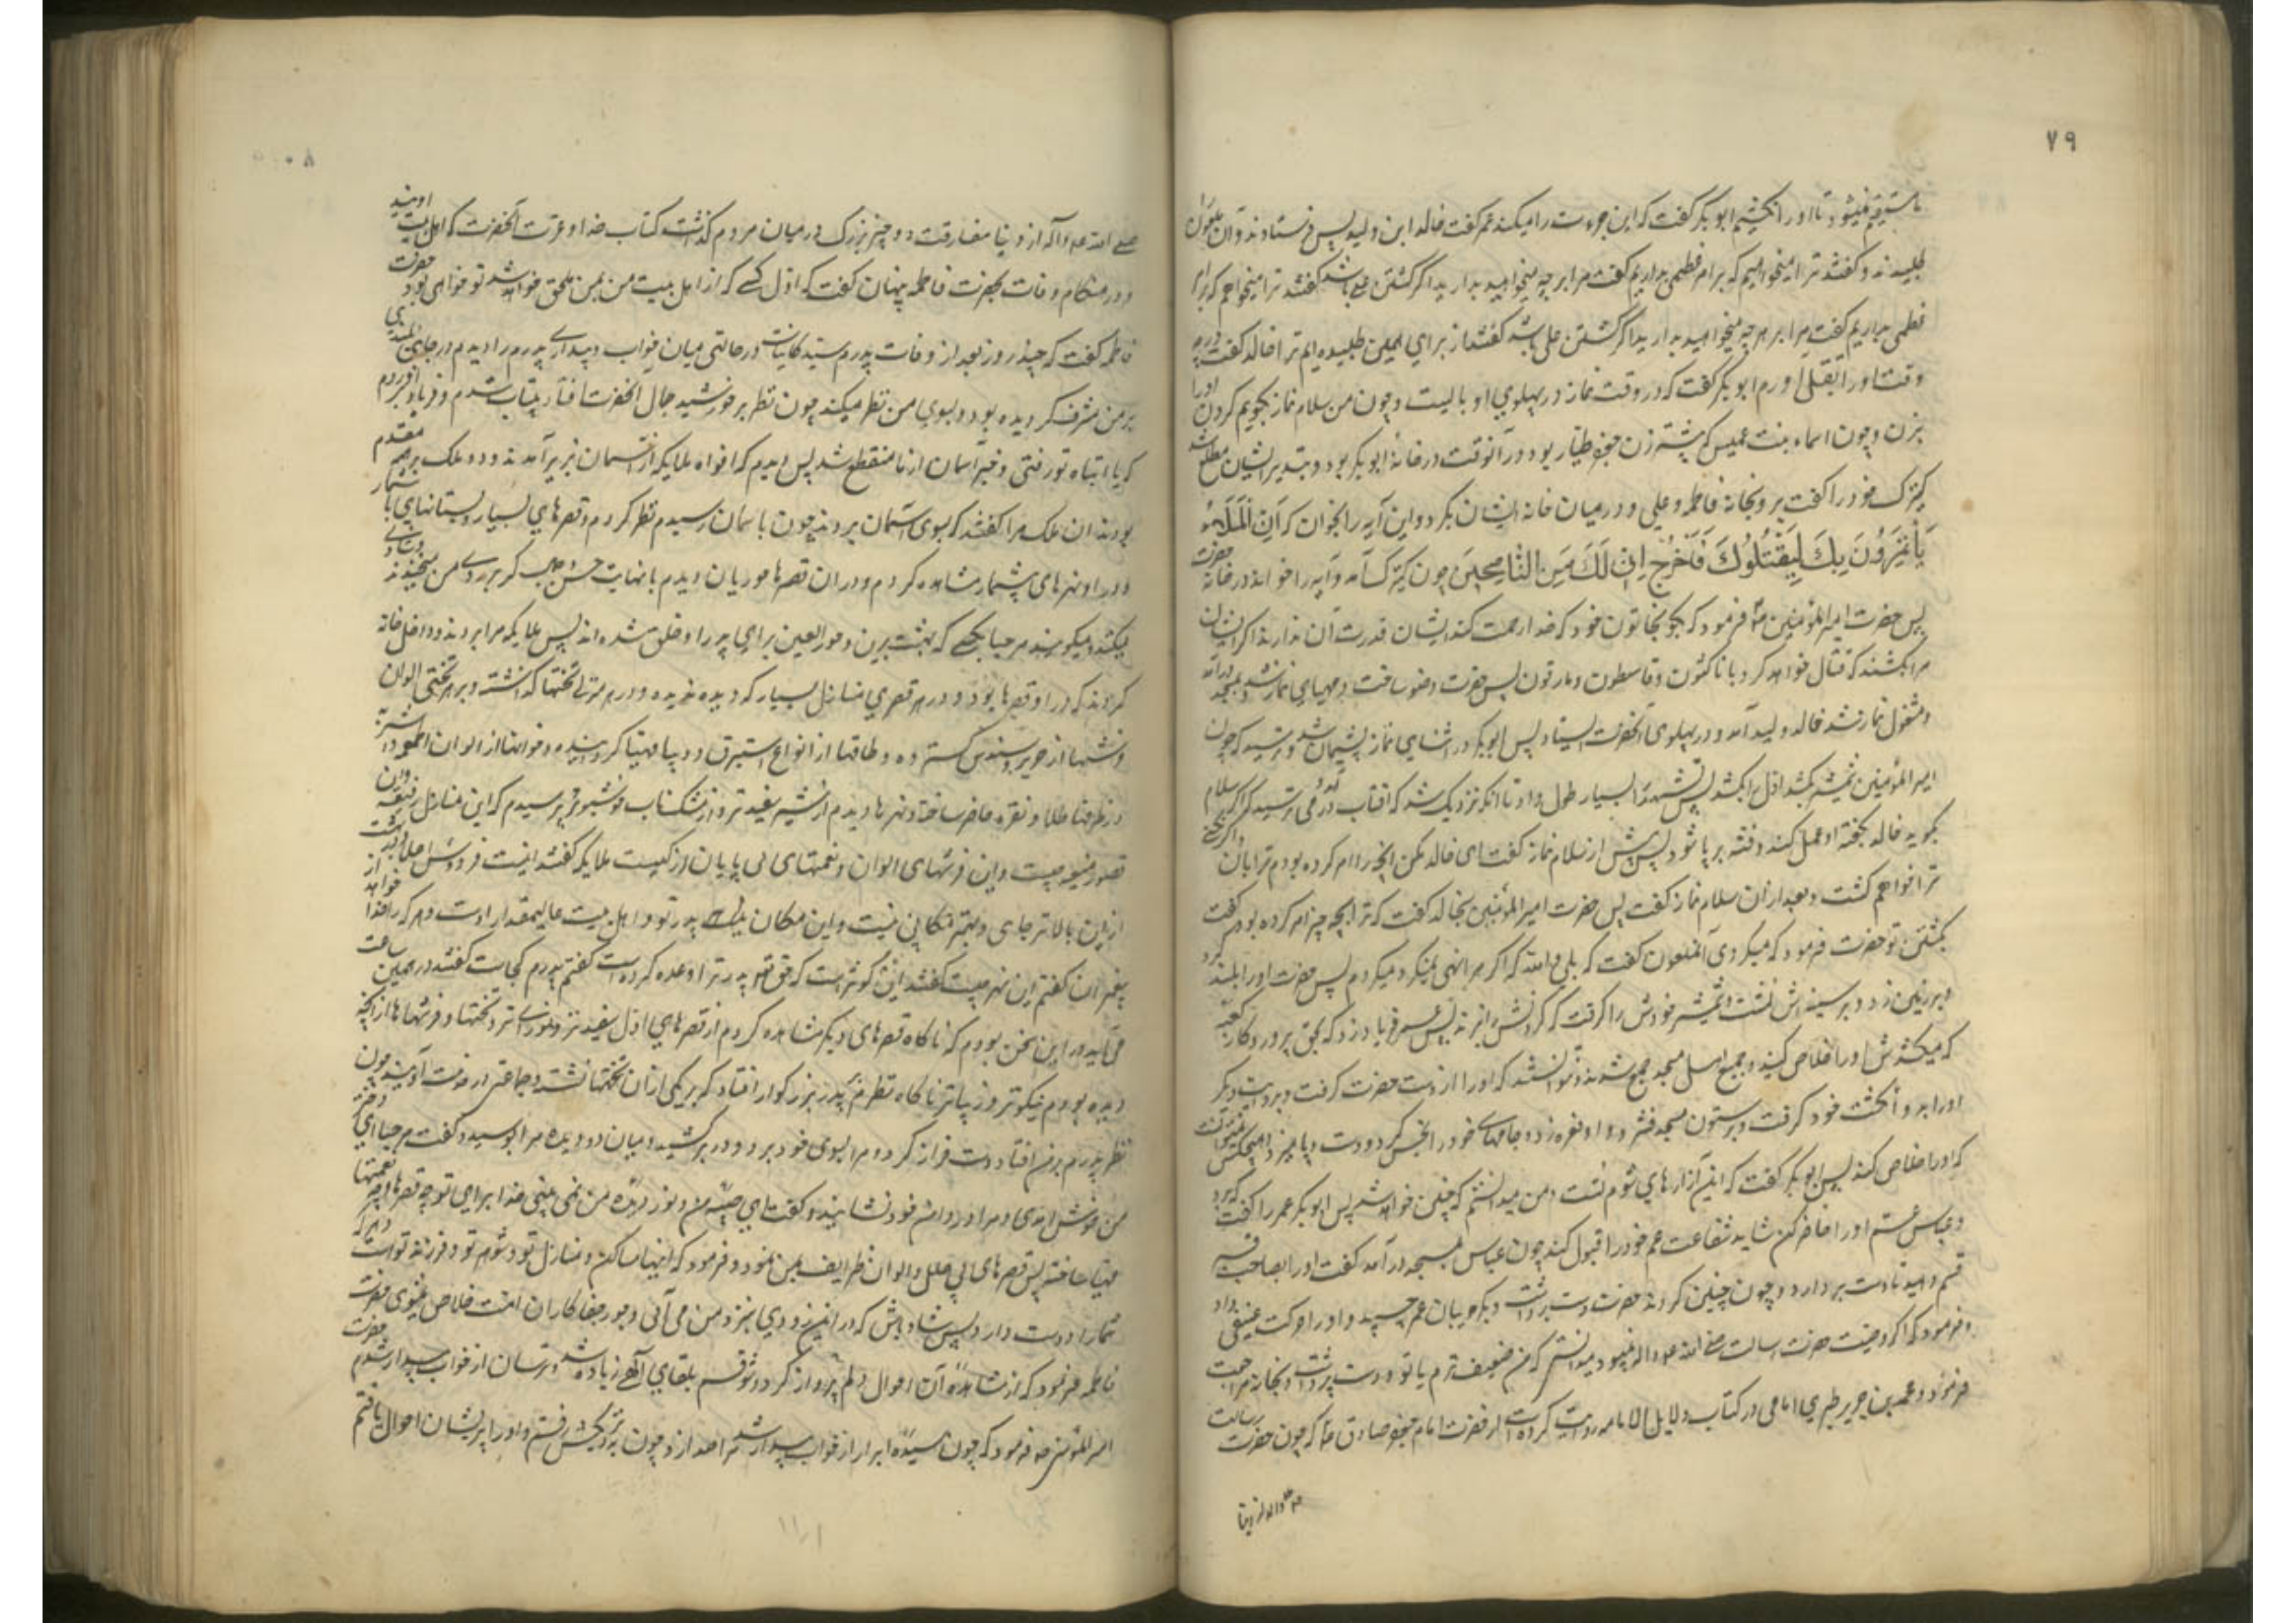 ۷۹
ما مستقیم نمیشود تا او را نکشیم ابو بکر گفت که این جرءت را میکند عمر گفت خالد ابن ولید پس فرستادند و آن ملعون را
طلبیدند و گفتند ترا میخواهیم که برام عظیمی بداریم گفت مرا بر هر چه میخواهید بدارید اگر کشتن علی باشد گفتند ترا میخواهیم که برام
عظمی بداریم گفت مرا بر هر چه میخواهید بدارید اگر کشتن علی باشد گفتند از برای همین طلبیده ایم ترا خالد گفت در چه
وقت او را بقتل آورم ابو بکر گفت که در وقت نماز در پهلوی او بایست و چون من سلام نماز بگویم گردن او را
بزن و چون اسماء بنت عمیس که پیشتر زن جعفر طیار بود و در آنوقت در خانه ابو بکر بود و بتدبیر ایشان مطلع شد
کنیزک خود را گفت برو بخانه فاطمه و علی و در میان خانه ایشان بگرد و این آیه را بخوان که اَنَّ الْمَلَأَ
یَأْتَمِرُونَ بِكَ لِیَقْتُلُوكَ فَاخْرُجْ اِنِّی لَكَ مِنَ النَّاصِحِینَ چون کنیزک آمد و آیه را خواند در خانه حضرت
پس حضرت امیر المؤمنین ع فرمود که بگو بخاتون خود که خدا رحمت کند ایشان قدرت آن ندارند اگر ایشان
مرا بکشند که قتال خواهد کرد با ناکثون و قاسطون و مارقون پس حضرت وضو ساخت و مهیای نماز شد و بمسجد در آمد
و مشغول نماز شد خالد ولید آمد و در پهلوی آنحضرت ایستاد پس ابو بکر در اثنای نماز پشیمان شد و ترسید که چون
امیر المؤمنین شمشیر بکشد اول او را بکشد پس تشهد را بسیار طول داد تا آنکه نزدیک شد که آفتاب بر آید و می ترسید که اگر سلام
بگوید خالد بگفته او عمل کند و فتنه بر پا شود پس پیش از سلام نماز گفت ای خالد مکن آنچه را امر کرده بودم ترا بآن و اگر بکنی
ترا خواهم کشت و بعد از آن سلام نماز گفت پس حضرت امیر المؤمنین بخالد گفت که ترا بچه چیز امر کرده بود گفت
بکشتن تو حضرت فرمود که میکردی آنملعون گفت که بلی والله که اگر مرا نهی نمیکرد میکردم پس حضرت او را بلند کرد
و بر زمین زد و بر سینه اش نشست و شمشیر خودش را گرفت که گردنش را بزند پس عمر فریاد زد که بحق پروردگار کعبه
که میکشدش او را خلاص کنید و جمیع اهل مسجد جمع شدند و نتوانستند که او را از دست حضرت گرفت و بروایت دیگر
او را بدو انگشت خود گرفت و بر ستون مسجد فشرد و او نعره زد و جامهای خود را نجس کرد و دست و پا میزد و هیچکس نمیتوانست
که او را خلاص کند پس ابو بکر گفت که این از رایهای شوم تست و من میدانستم که چنین خواهد شد پس ابو بکر عمر را گفت که برو
و عباس عمش او را حاضر کن شاید شفاعت عم خود را قبول کند چون عباس بمسجد در آمد گفت او را بصاحب قبر
قسم دهید تا دست بردارد و چون چنین کردند حضرت دست برداشت و گریبان عمر چسپید و او را حرکت عنیفی داد
و فرمود که اگر وصیت حضرت رسالت صلی الله علیه و اله نمیبود میدانستی که من ضعیف ترم یا تو و دست برداشت و بخانه مراجعت
فرمود و محمد بن جریر طبری امامی در کتاب دلایل الامامه روایت کرده است از حضرت امام جعفر صادق ع که چون حضرت رسالت
۸۰
صلی الله علیه و آله از دنیا مفارقت دو چیز بزرگ در میان مردم گذاشت کتاب خدا و عترت آنحضرت که اهل بیت اویند
و در هنگام وفات بحضرت فاطمه پنهان گفت که اول کسی که از اهل بیت من بمن ملحق خواهد شد تو خواهی بود حضرت
فاطمه گفت که چند روز بعد از وفات پدرم سید کاینات در حالتی میان خواب و بیداری پدرم را دیدم در جای بلندی
بر من مشرف گردیده بود و بسوی من نظر میکند چون نظر بر خورشید جمال آنحضرت افتاد بیتاب شدم و فریاد برآوردم
که یا ابتاه تو رفتی و خبر آسمان از ما منقطع شد پس دیدم که افواه ملایکه از آسمان بزیر آمدند و دو ملک بر همه مقدم
بودند آن ملک مرا گفتند که بسوی آسمان بردند چون باسمان رسیدم نظر کردم و قصرهای بسیار و بستانهای بیشمار
و در او نهرهای بیشمار مشاهده کردم و در آن قصرها حوریان دیدم با نهایت حسن که بر روی من میخندند
میکنند و میگویند مرحبا بکسی که بهشت برین و حور العین برای پدر او خلق شده اند پس ملایکه مرا بردند و داخل خانه
کردند که در او قصرها بود و در هر قصری منازل بسیار که دیده ندیده و در هر منزلی تختها گذاشته و بر هر تختی الوان
فرشها از حریر و سندس گسترده و طاقها از انواع استبرق و دیبا مهیا گردانیده و خوانها از الوان اطعمه و اشربه
در ظرفها طلا و نقره حاضر ساخته و نهرها دیدم از شیر سفید تر و از مشک ناب خوشبوتر پرسیدم که این منازل رفیعه و این
قصور منیعه چیست و این فرشهای الوان و نعمتهای بی پایان از کیست ملایکه گفتند اینست فردوس اعلی بهشت
از این بالاتر جای و بهتر مکانی نیست و این مکان پدر تو و اهل بیت عالیمقدار اوست و هر که را خدا خواهد از
پیغمبران گفتم این نهر چیست گفتند این کوثر است که حق تع پدر ترا وعده کرده است گفتم پدرم کجاست گفتند در همین ساعت
می آید در این سخن بودم که ناگاه قصرهای دیگر مشاهده کردم از قصرهای اول سفید تر و نورانی تر و تختها و فرشها از آنچه
دیده بودم نیکوتر و زیباتر ناگاه نظرم بر پدر بزرگوار افتاد که بر یکی از آن تختها نشسته و جماعتی در خدمت اویند چون
نظر پدرم بر من افتاد دست فراز کرد و مرا بسوی خود برد و در بر کشید و میان دو دیده مرا بوسید و گفت مرحبا ای دختر
من خوش آمدی و مرا در دامن خود نشانید و گفت ای حبیبه من و نور دیده من نمی بینی خدا برای تو چه قصرها و نعمتها
مهیا ساخته پس قصرهای پر حلل و الوان ظرایف بمن نمود و فرمود که اینها مساکن و منازل تو و شوهر تو و فرزند تو است و هر که
شما را دوست دارد پس شاد باش که در این زودی بنزد من می آئی و جور جفا کاران امت خلاص میشوی حضرت
فاطمه فرمود که از مشاهده آن احوال دلم پرواز کرد و شوقم بلقای الهی زیاده شد و ترسان از خواب بیدار شدم حضرت
امیر المؤمنین ع فرمود که چون سیده ابرار از خواب بیدار شد مرا صدا زد چون بنزدیکش رفتم و او را پریشان احوال یافتم